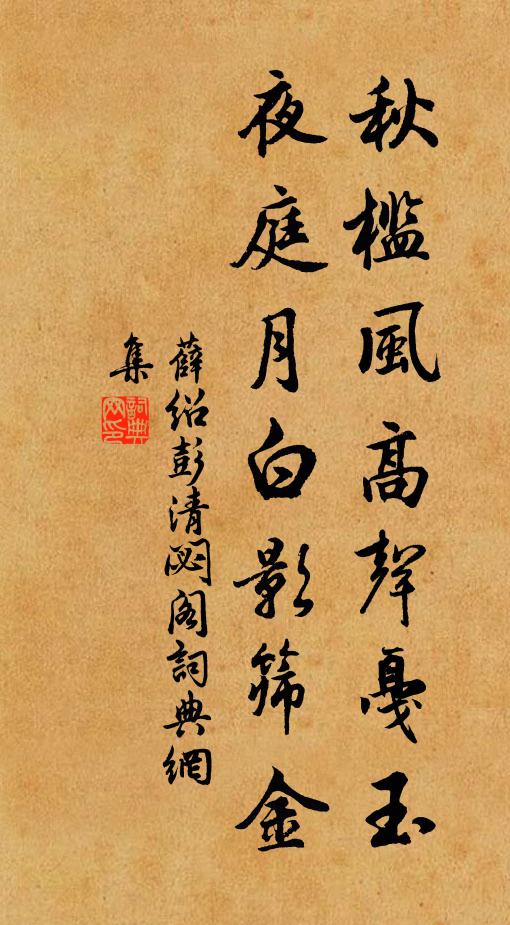 秋檻風高聲戞玉
夜庭月白影篩金
薛紹彭清閟閣詞典網
集
詞典網印